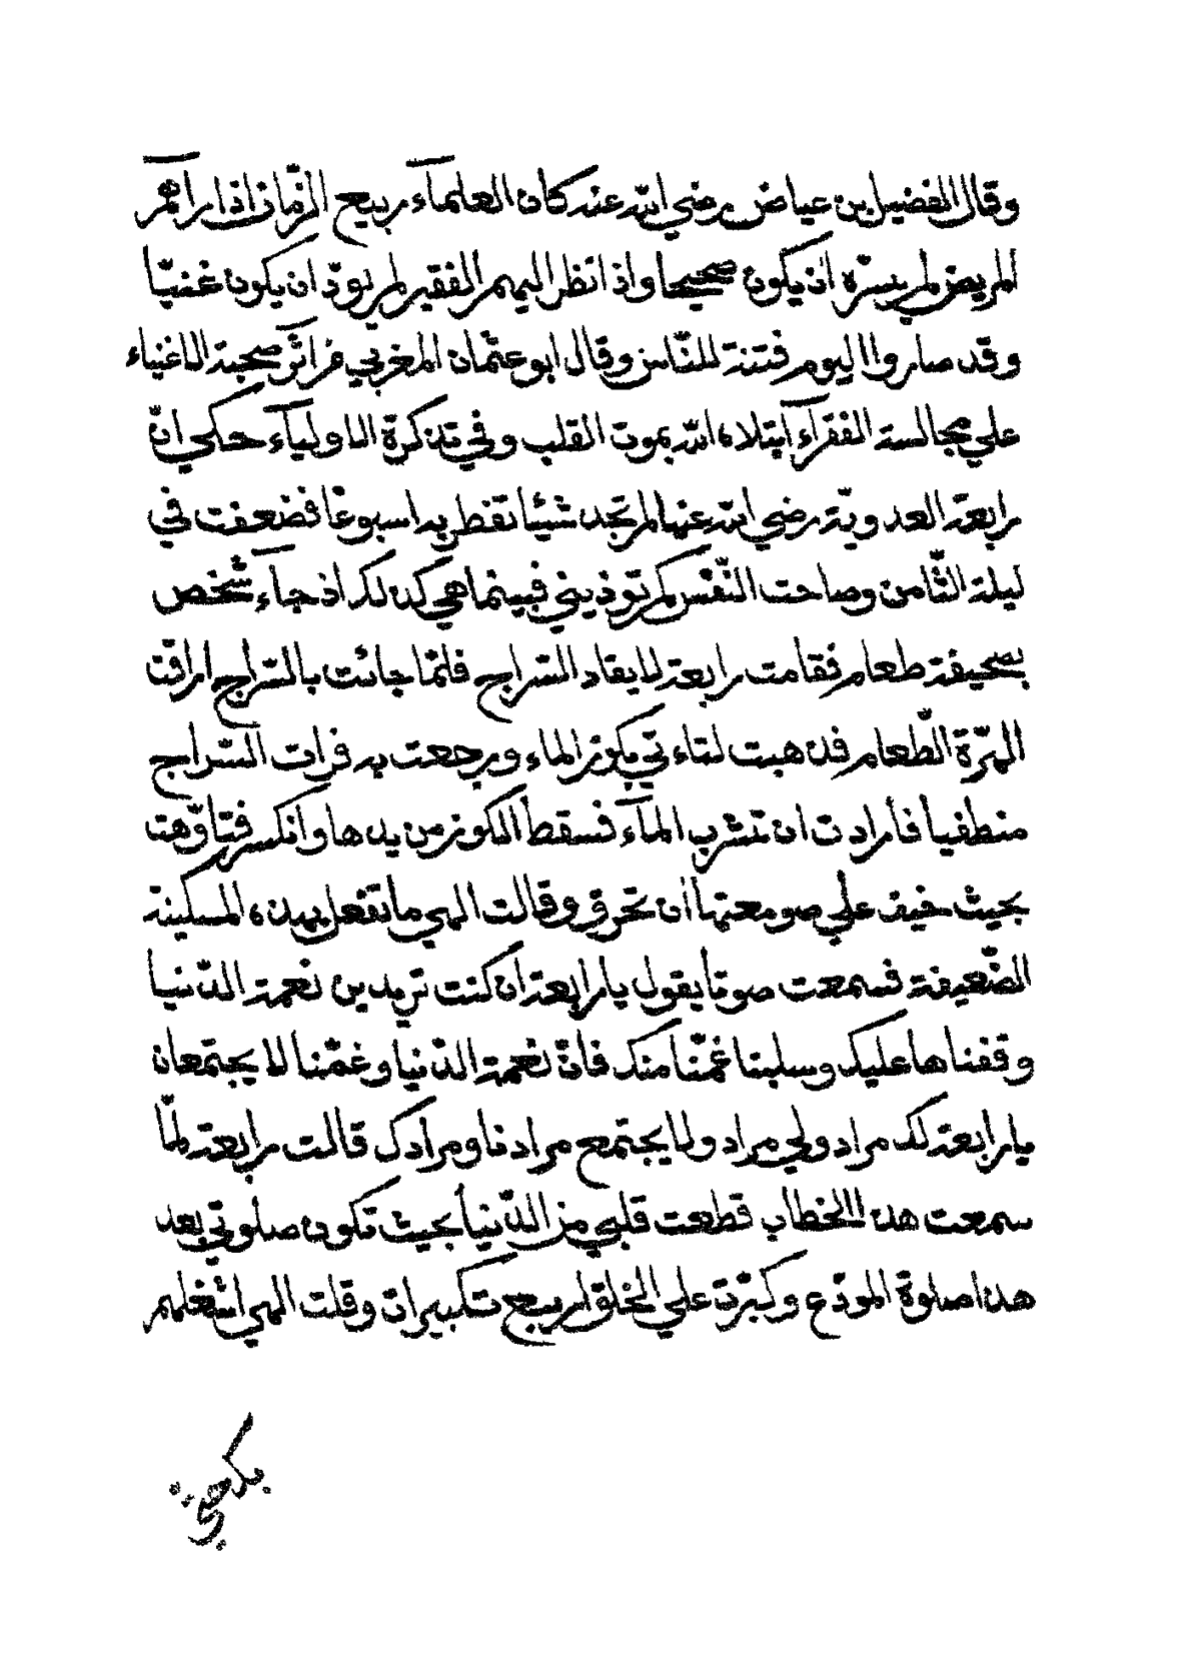 وقال الفضيل بن عياض رضي الله عنه كان العلمآء ربيع الزّمان اذا رآهم
المريض لم يسرّه ان يكون صحيحا واذا نظر اليهم الفقير لم يودّ ان يكون غنيّا
وقد صاروا اليوم فتنة للنّاس وقال ابو عثمان المغربي من آثر صحبة الاغنياء
علي مجالسة الفقرآء ابتلاه الله بموت القلب وفي تذكرة الاوليآء حكي انّ
رابعة العدويّة رضي الله عنها لم تجد شيئا تفطر به اسبوعا فضعفت في
ليلة الثّامن وصاحت النّفس كم توذيني فبينما هي كذلك اذ جآء شخص
بصحيفة طعام فقامت رابعة لايقاد السّراج فلمّا جائت بالسّراج اراقت
الهرّة الطّعام فذهبت لتاءتي بكوز الماء ورجعت به فرات السّراج
منطفيا فأرادت ان تشرب المآء فسقط الكوز من يدها وانكسر فتاوّهت
بحيث خيف علي صومعتها ان تحرق وقالت الهي ما تفعل بهذه المسكينة
الضّعيفة فسمعت صوتا يقول يا رابعة ان كنت تريدين نعمة الدّنيا
وقفناها عليك وسلبنا غمّنا منك فانّ نعمة الدّنيا وغمّنا لا يجتمعان
يا رابعة لك مراد ولي مراد ولا يجتمع مرادنا ومرادك قالت رابعة لمّا
سمعت هذا الخطاب قطعت قلبي من الدّنيا بحيث تكون صلوتي بعد
هذا صلوة المودّع وكبّرت علي الخلق اربع تكبيرات وقلت الهي اشغلهم